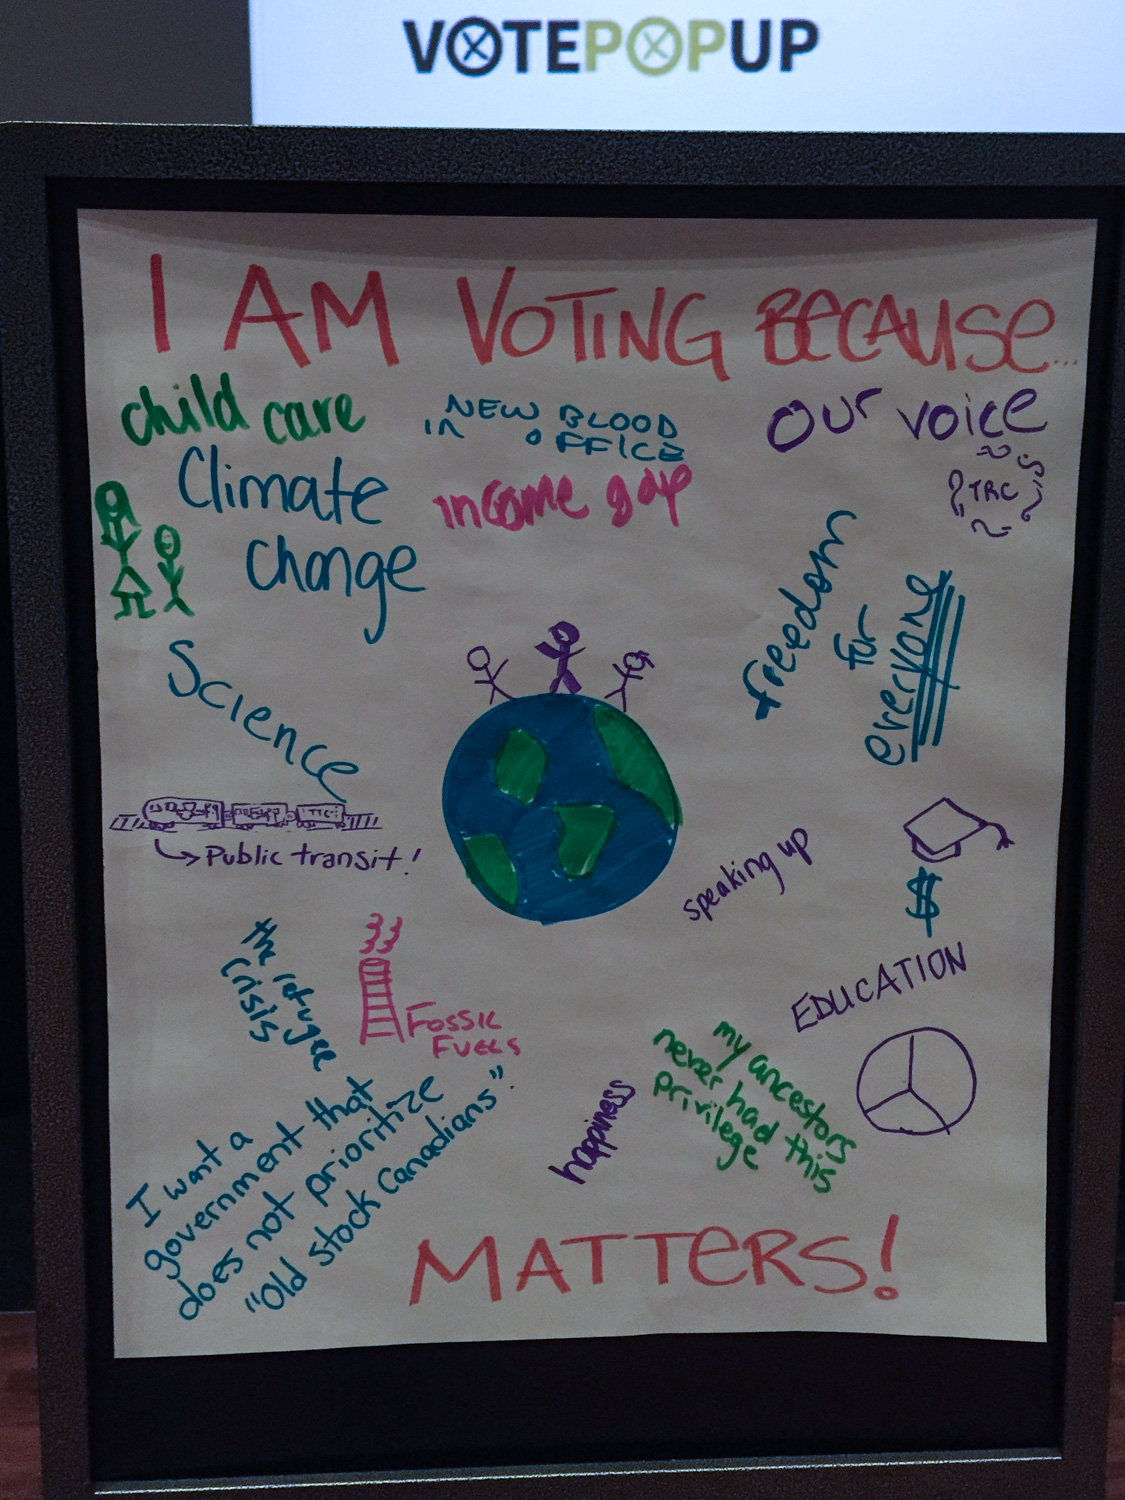 VOTEPOPUP
I AM VOTING BECAUSE...
child care
NEW BLOOD
in OFFICE
OUR VOICE
Climate
change
income gap
TRC
freedom
for
everyone
Science
TTC
Public transit!
speaking up
$
EDUCATION
the refugee
crisis
FOSSIL
FUELS
my ancestors
never had this
privilege
happiness
I want a
government that
does not prioritize
"Old Stock Canadians".
MATTERS!